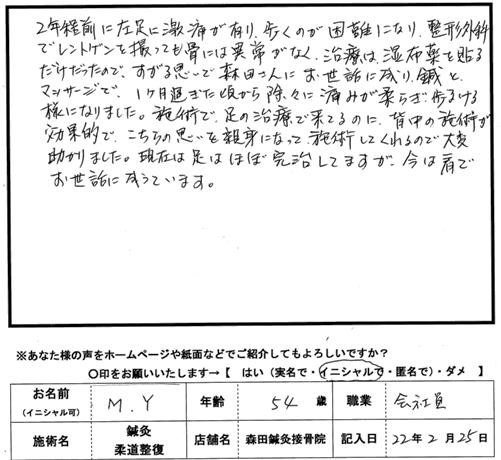 2年程前に左足に激痛が有り、歩くのが困難になり、整形外科
でレントゲンを撮っても骨には異常がなく、治療は、湿布薬を貼る
だけだったので、すがる思いで森田さんにお世話に成り、鍼と
マッサージで、1ヶ月過ぎた頃から除々に痛みが柔らぎ歩ける
様になりました。施術で、足の治療で来てるのに、背中の施術が
効果的で、こちらの思いを親身になって施術してくれるので大変
助かりました。現在は足はほぼ完治してますが、今は肩で
お世話に成っています。
※あなた様の声をホームページや紙面などでご紹介してもよろしいですか？
〇印をお願いいたします→【 はい（実名で・イニシャルで・匿名で）・ダメ 】
お名前 (イニシャル可) M.Y 年齢 54 歳 職業 会社員
施術名 鍼灸 柔道整復 店舗名 森田鍼灸接骨院 記入日 22年2月25日